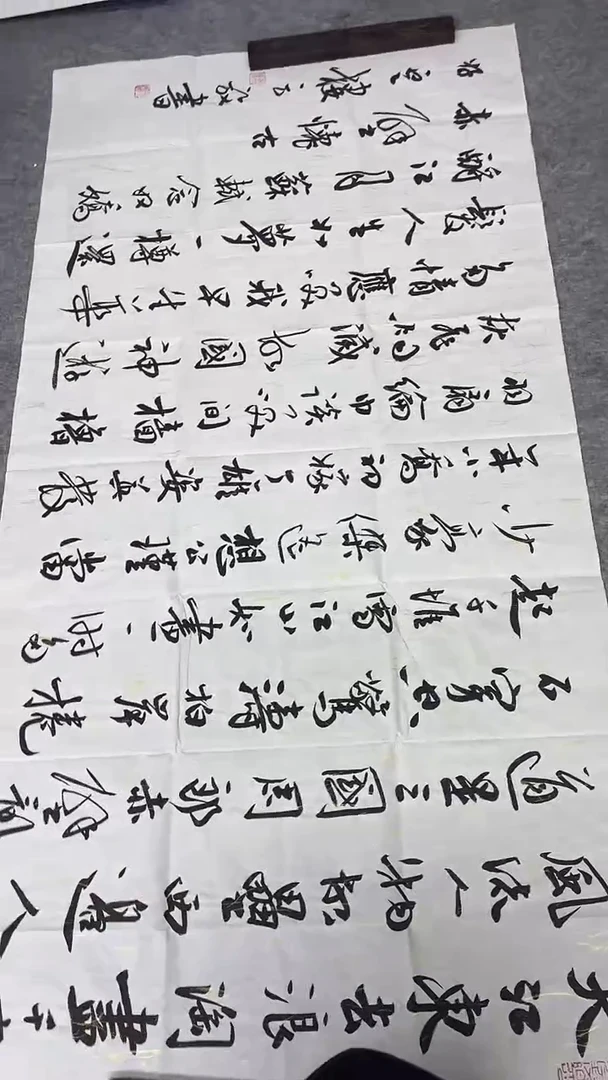 大江東去浪淘盡千
風流人物故壘西邊人
道是三國周郎赤壁亂
石穿空驚濤拍岸捲
起千堆雪江山如畫一時多
少豪傑遙想公瑾當
年小喬初嫁了雄姿英發
羽扇綸巾談笑间檣櫓
灰飛烟滅故國神遊
多情應笑我早生華
髮人生如夢一樽還
酹江月蘇軾念奴嬌
赤壁懷古
書